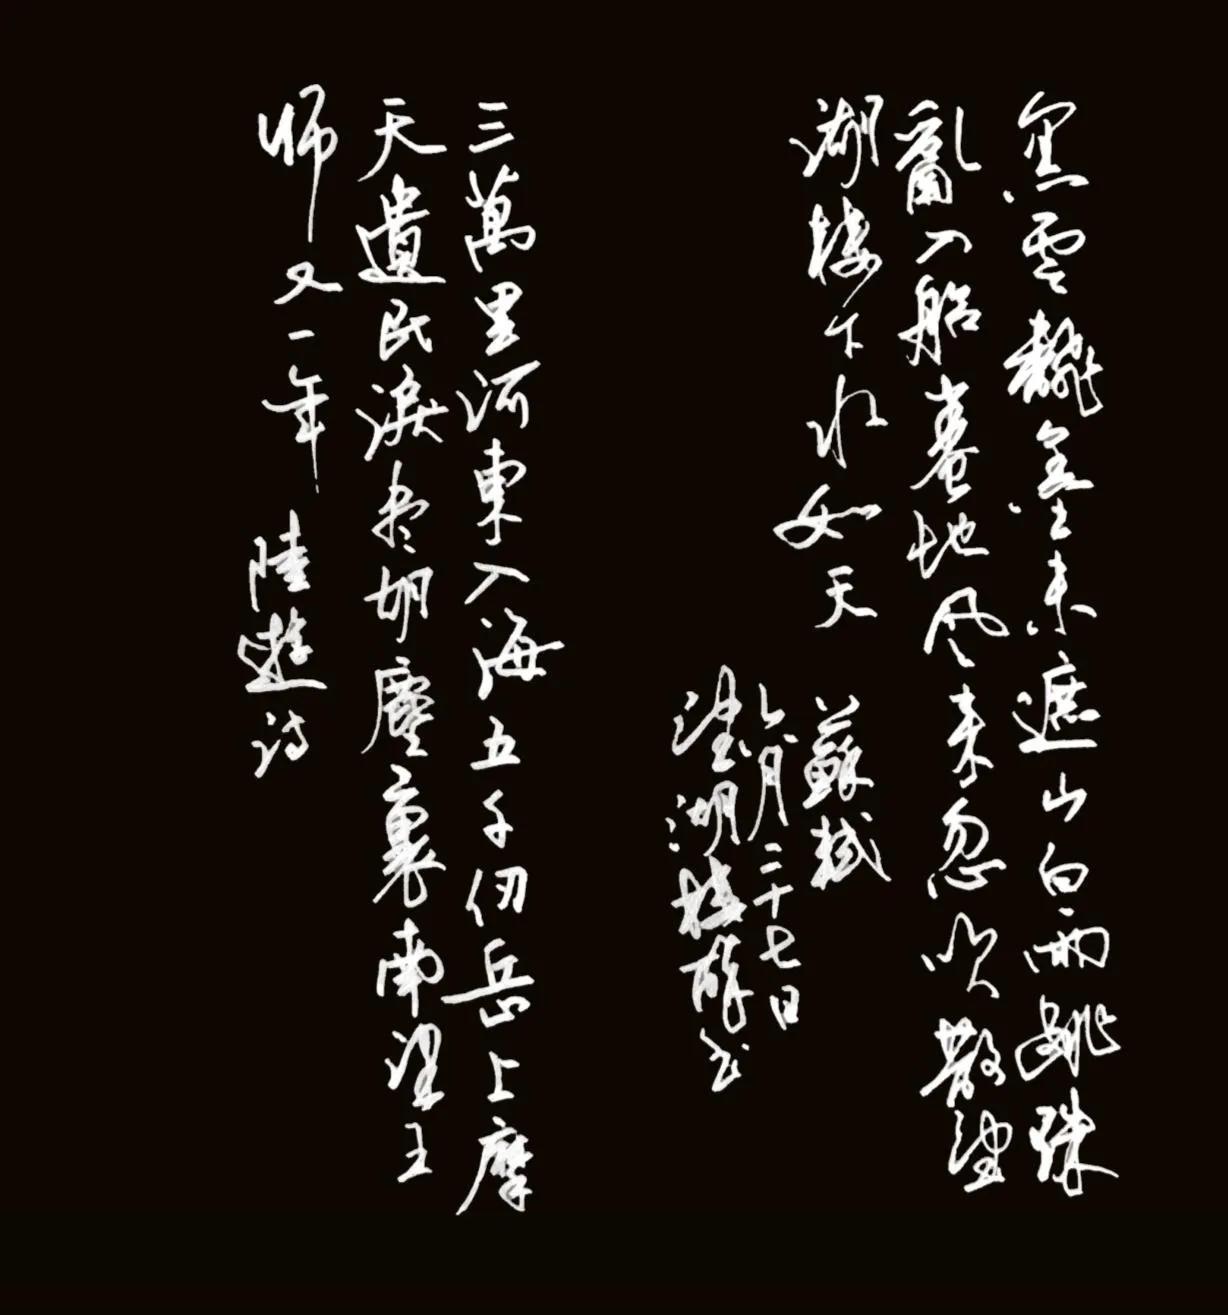 黑雲翻墨未遮山白雨跳珠
亂入船卷地风来忽吹散望
湖楼下水如天
蘇軾
六月二十七日
望湖楼醉书
三萬里河東入海五千仞岳上摩
天遺民淚尽胡塵裏南望王
师又一年 陸遊诗